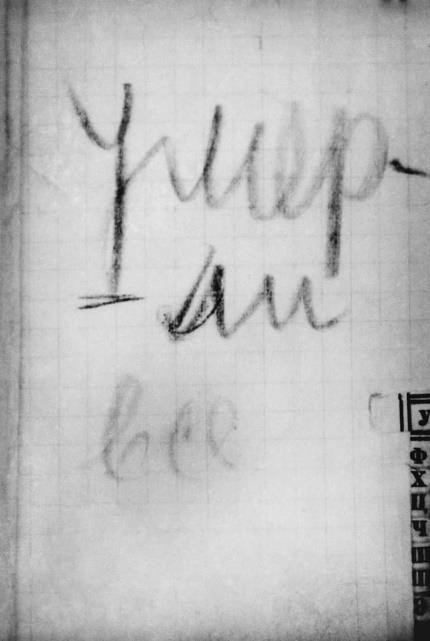 Умер-
ли
все
У
Ф
Х
Ц
Ч
Ш
Щ
Э